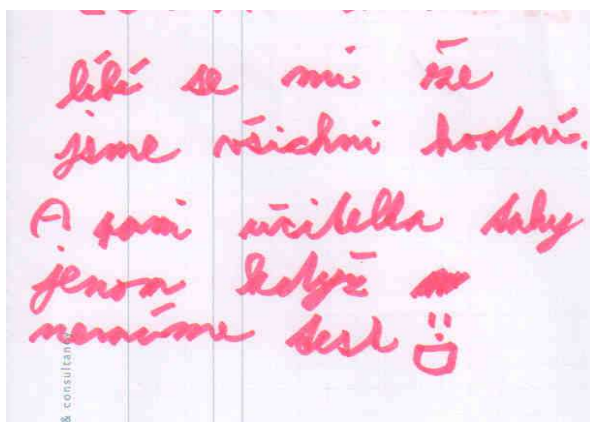 líbí se mi že
jsme všichni hodní.
A paní učitelka taky
jenom když
nemíme test
& consultancy